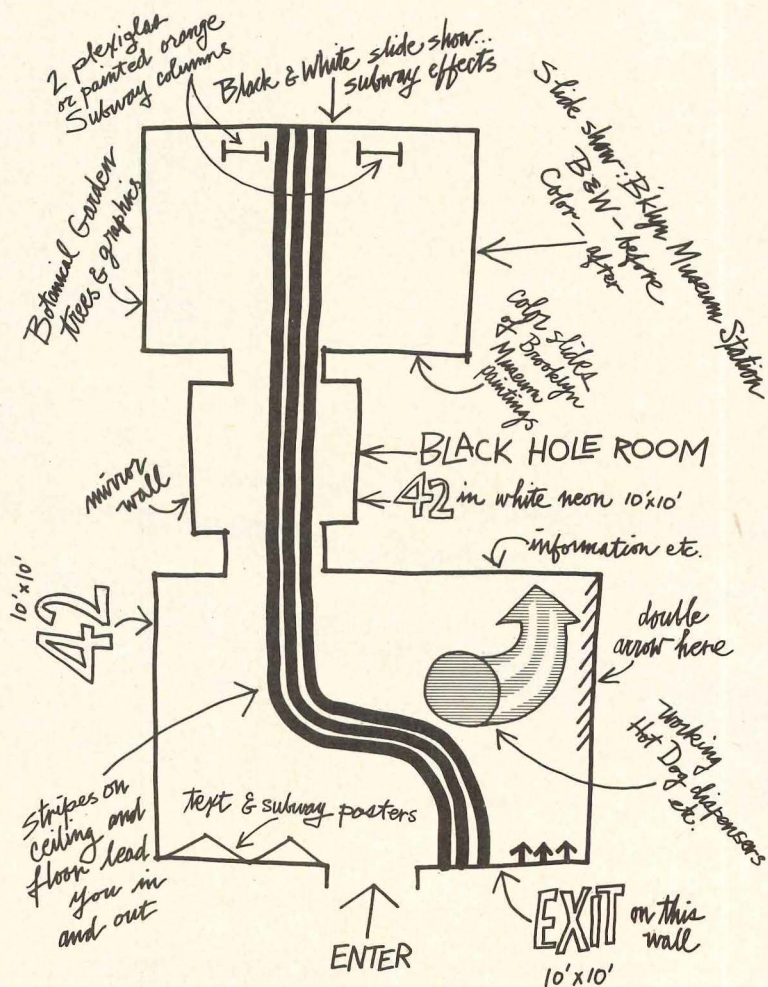 2 plexiglas
or painted orange
Subway columns
Black & White slide show...
subway effects
Slide show: B'klyn Museum Station
B&W - before
Color - after
Botanical Garden
trees & graphics
color slides
of Brooklyn
Museum
paintings
BLACK HOLE ROOM
42 in white neon 10'x10'
mirror
wall
information etc.
10'x10'
42
double
arrow here
working
Hot Dog dispensers
etc.
stripes on
ceiling and
floor lead
you in
and out
text & subway posters
ENTER
EXIT on this
wall
10'x10'